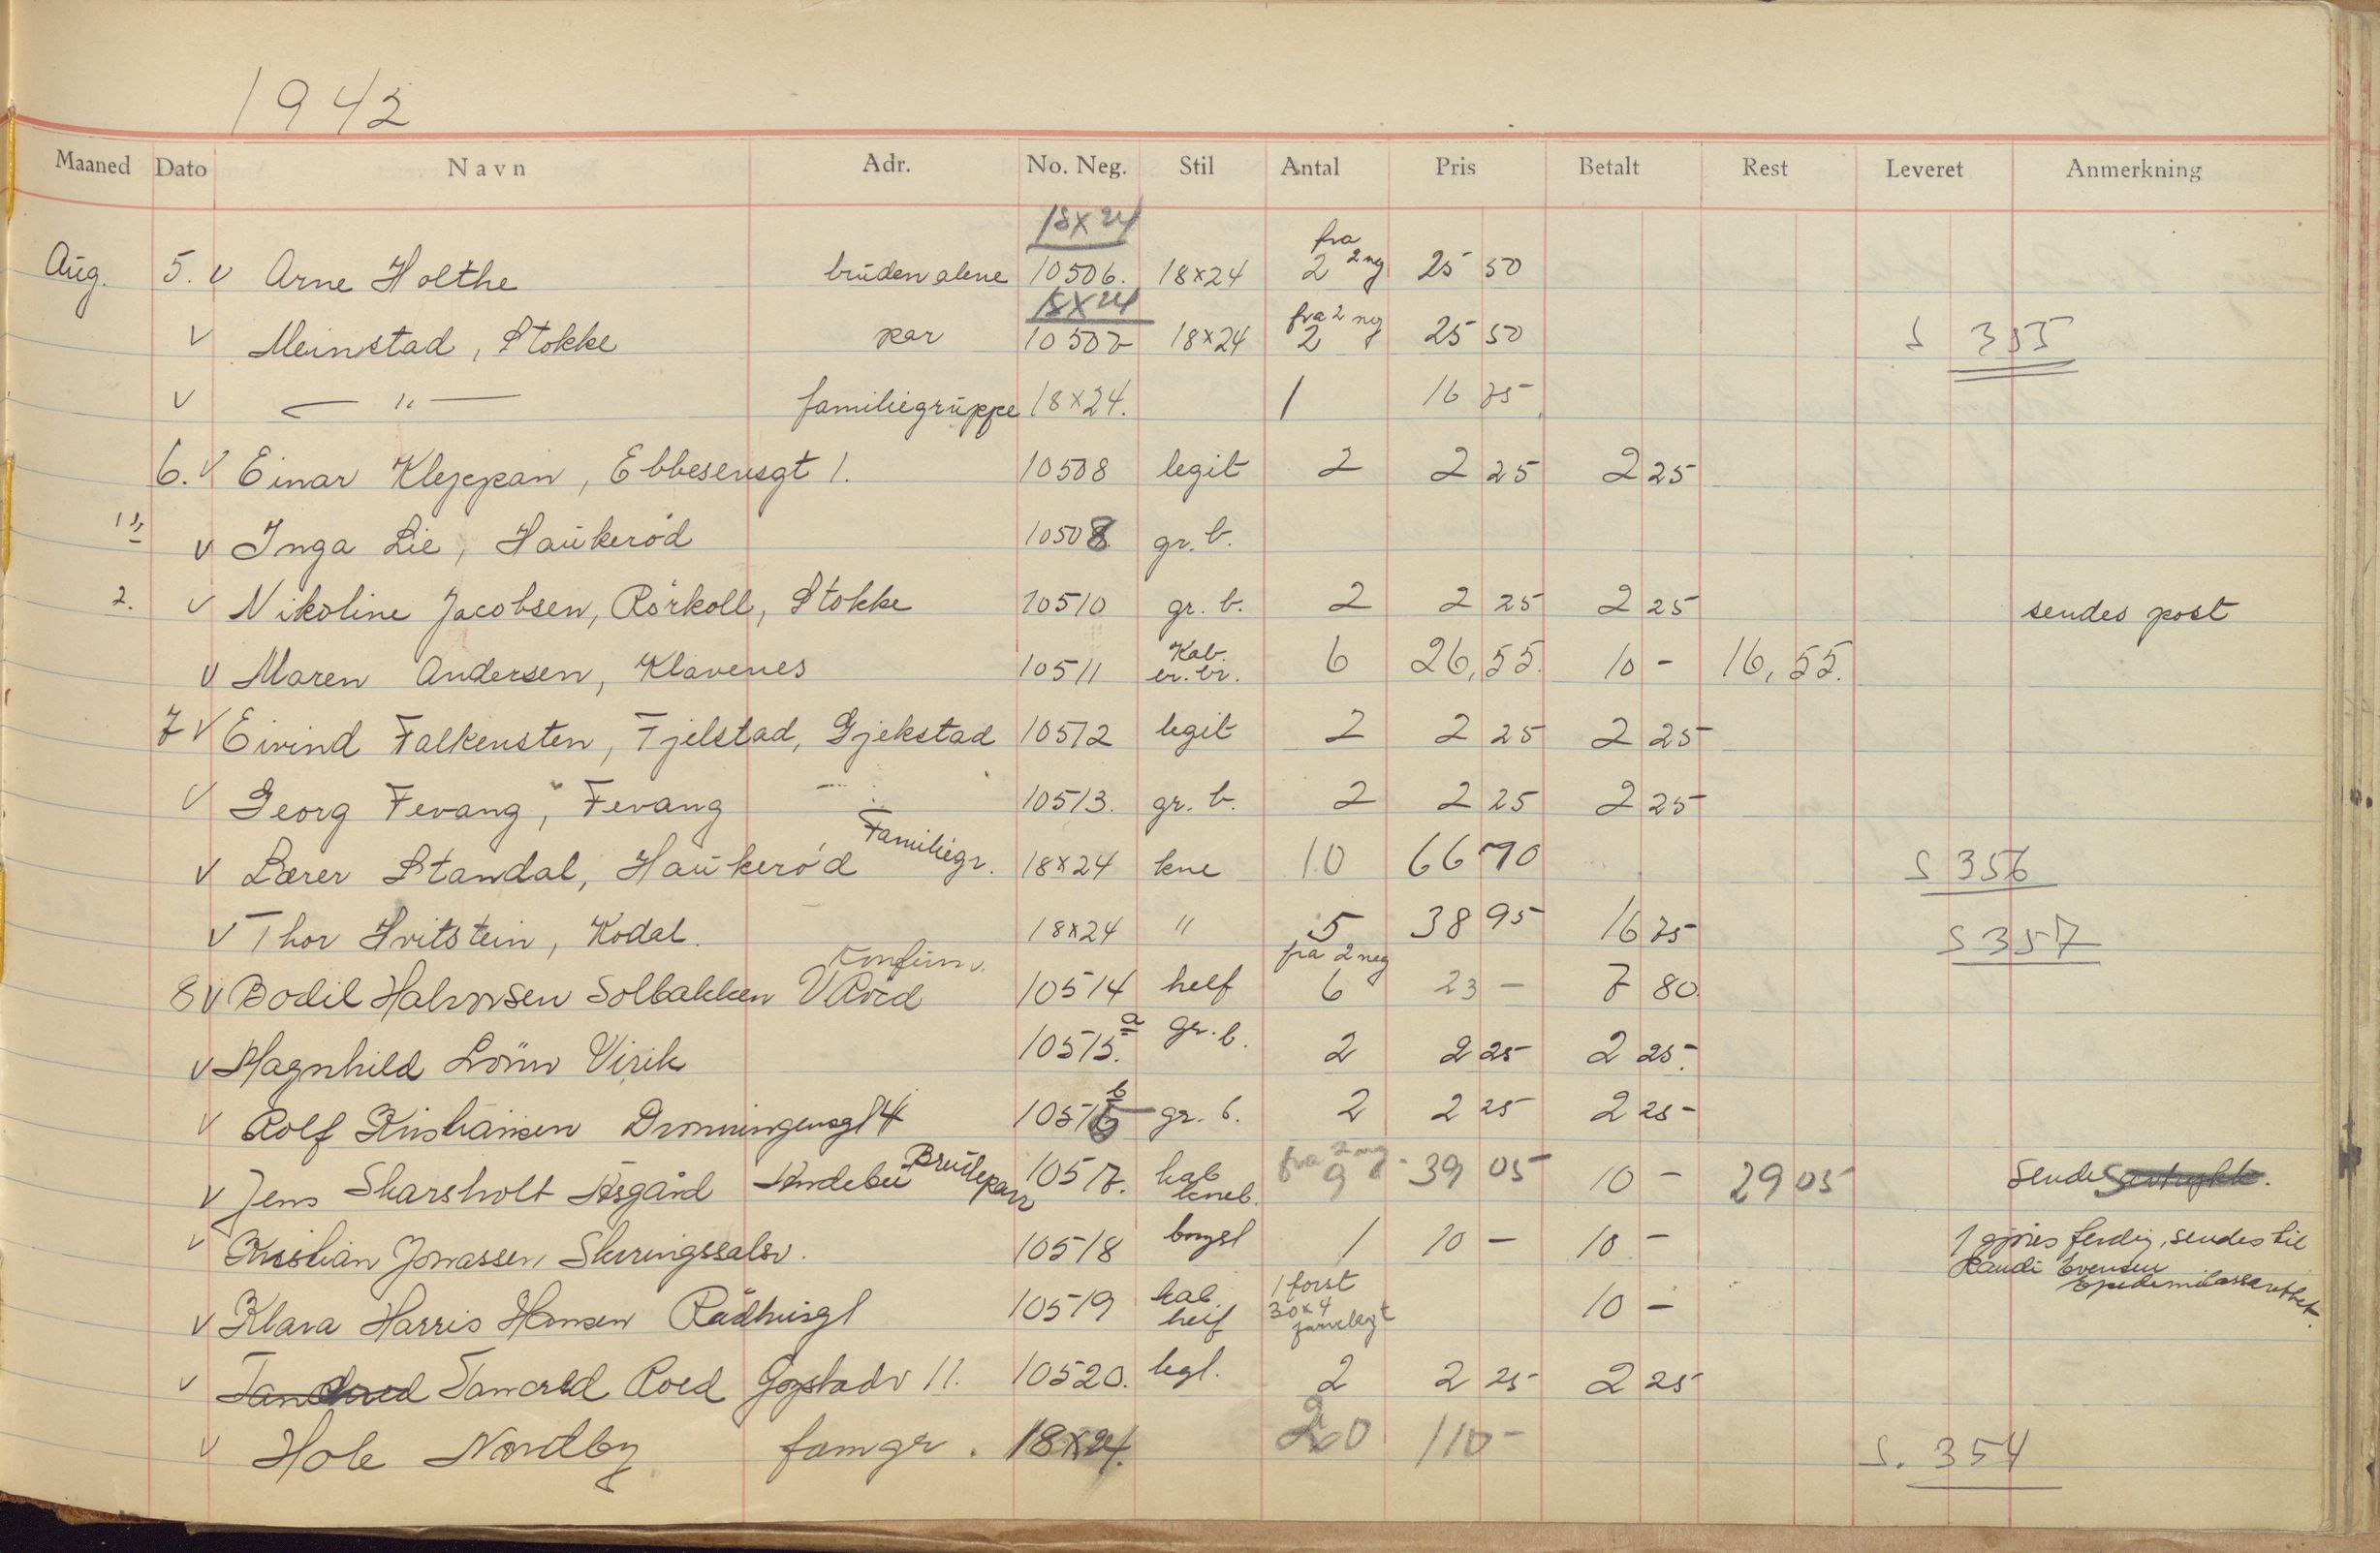 1942
Maaned Dato Navn Adr. No. Neg. Stil Antal Pris Betalt Rest Leveret Anmerkning
18x24
Aug. 5. v Arne Holthe brüden alene 10506. 18x24 2 fra 2 neg 25 50
18x24
v Meinstad, Stokke par 10507 18x24 2 fra 2 neg 25 50 S 355
v — " — familiegrüppe 18x24. 1 16 75
6. v Einar Kleppan, Ebbesensgt 1. 10508 legit 2 2 25 2 25
v Inga Lie, Haükerød 10508 gr. b.
2. v Nikoline Jacobsen, Rörkoll, Stokke 10510 gr. b. 2 2 25 2 25 sendes post
v Maren Andersen, Klavenes 10511 Kab. br. br. 6 26,55. 10 - 16,55.
7 v Eivind Falkensten, Fjelstad, Gjekstad 10512 legit 2 2 25 2 25
v Georg Fevang, Fevang 10513. gr. b. 2 2 25 2 25
v Lærer Standal, Haükerød Familiegr. 18x24 kne 10 66 70 S 356
v Thor Hvitstein, Kodal. 18x24 " 5 38 95 16 75 S 357
Konfirm. fra 2 neg
8 v Bodil Halvorsen Solbakken V Råd 10514 helf 6 23 - 7 80
v Magnhild Lönn Virik 10515. a gr. b. 2 2 25 2 25.
v Rolf Kristiansen Dronningensgt 4 10515 b gr. b. 2 2 25 2 25 -
v Jens Skarsholt Åsgård Andebü Brüdepar 10517. kab kneb. fra 2 neg. 9 39 05 10 - 29 05 Sendes
v Kristian Jonassen, Skiringssalsv. 10518 1 10 - 10 - 1 gjøres ferdig, sendes til
Randi Evensen
Epidemilasarettet.
v Klara Harris Hansen Rådhüsgt 10519 kab. helf 1 forst 30x4 10 -
v Tancred Roed Gogstadv 11. 10520. legl. 2 2 25 2 25
v Hole Nordby famgr. 18x24. 20 110 - S. 354